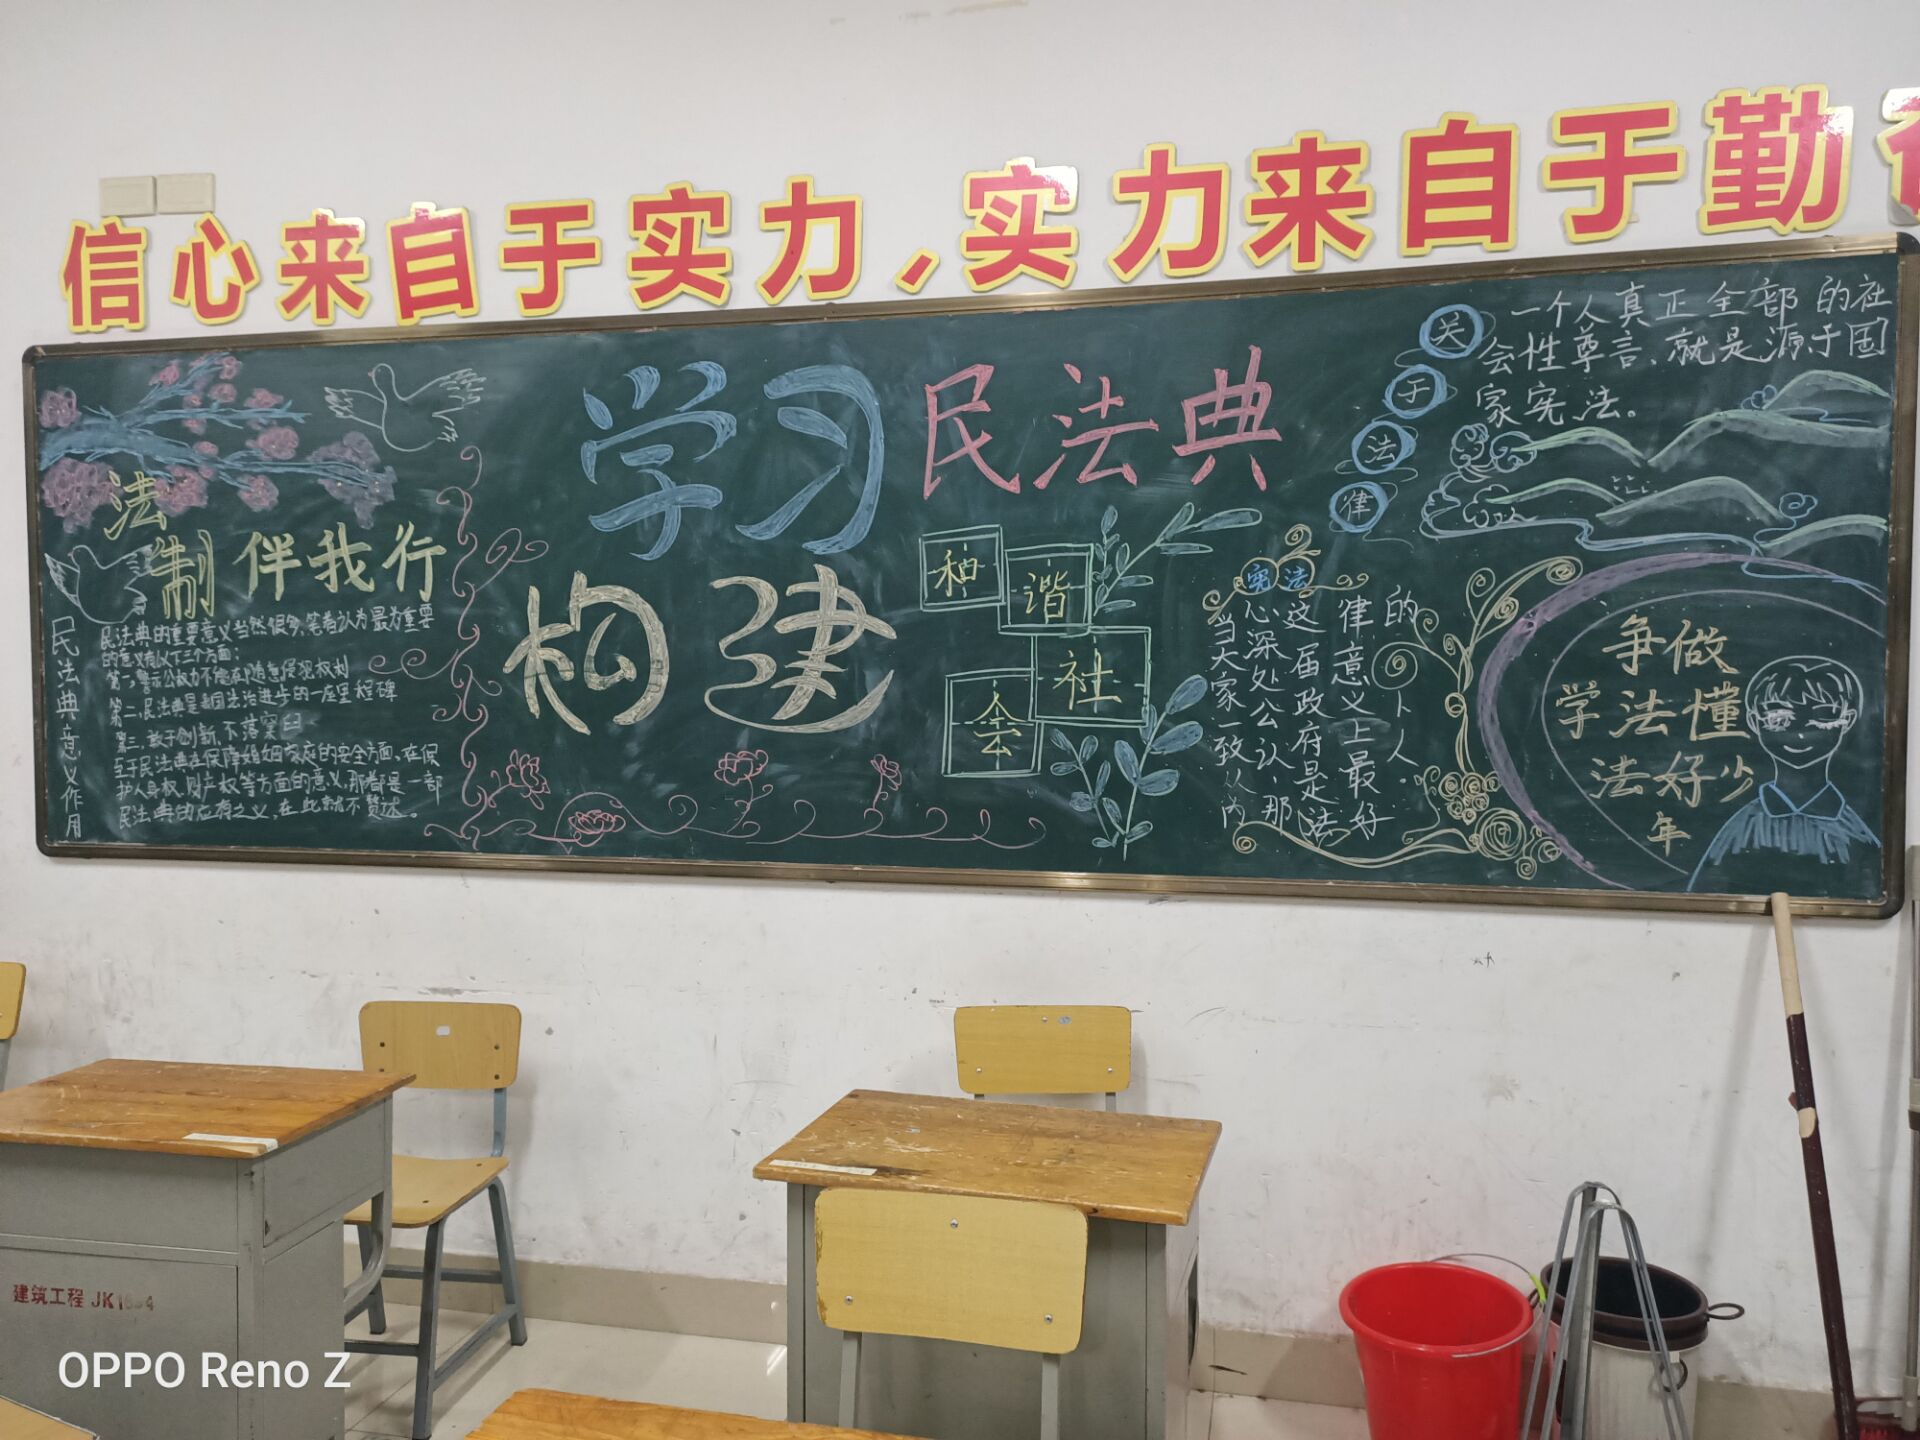 信心来自于实力，实力来自于勤
学习民法典
构建
和谐
社
会
法
制伴我行
民法典意义作用
民法典的重要意义当然很多，笔者认为最为重要
的意义有以下三个方面：
第一，警示公权力不能随意侵犯权利
第二，民法典是我国法治进步的一座里程碑
第三，敢于创新，不落窠臼
至于民法典在保障婚姻家庭的安全方面，在保
护人身权、财产权等方面的意义，那都是一部
民法典的应有之义，在此就不赘述。
关于法律
一个人真正全部的社
会性尊言、就是源于国
家宪法。
宪法
当大家一致从内
心深处公认，那
这届政府是法
律意义上最好
的
人。
争做
学法懂
法好少
年
建筑工程 JK
OPPO Reno Z